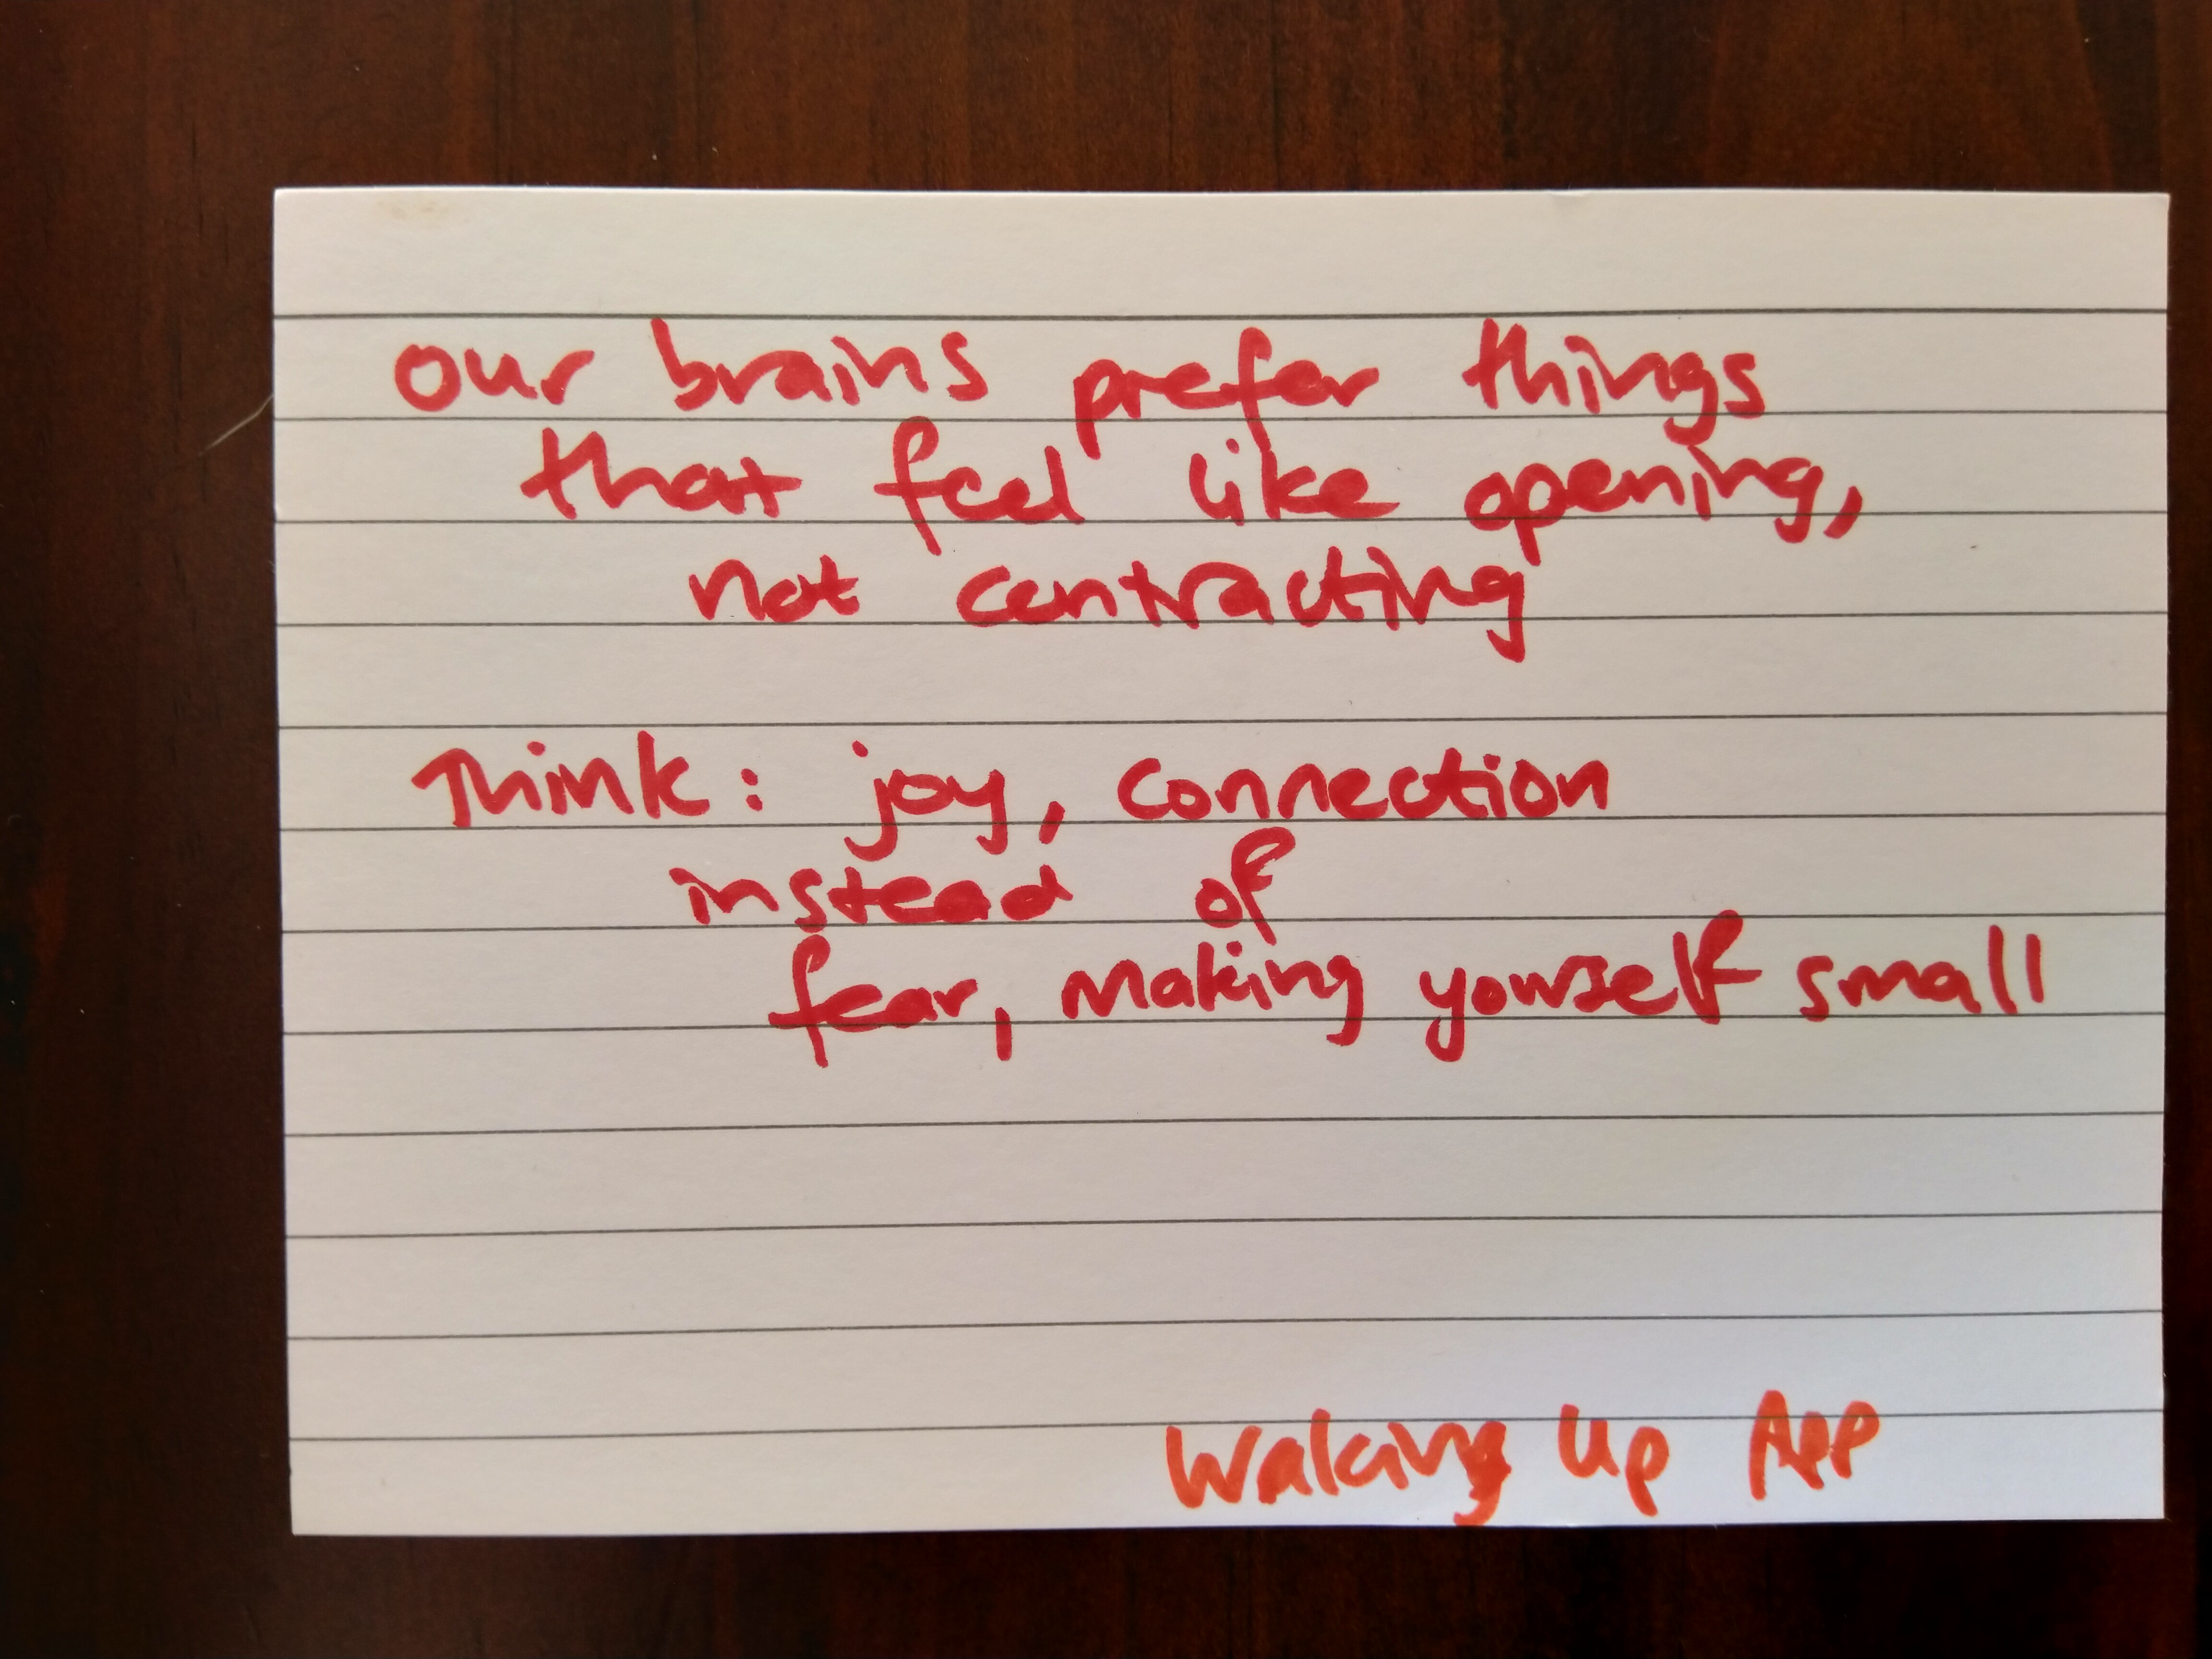 our brains prefer things
that feel like opening,
not contracting
Think: joy, connection
instead of
fear, making yourself small
Waking Up App